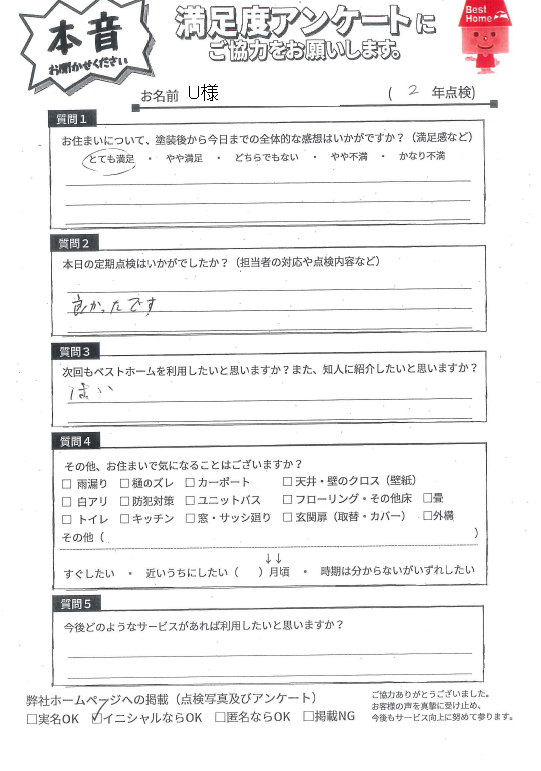 本音
お聞かせください
満足度アンケートに
ご協力をお願いします。
Best
Home
お名前 U様 ( 2 年点検)
質問1
お住まいについて、塗装後から今日までの全体的な感想はいかがですか？（満足感など）
とても満足 ・ やや満足 ・ どちらでもない ・ やや不満 ・ かなり不満
質問2
本日の定期点検はいかがでしたか？（担当者の対応や点検内容など）
良かったです
質問3
次回もベストホームを利用したいと思いますか？また、知人に紹介したいと思いますか？
はい
質問4
その他、お住まいで気になることはございますか？
□ 雨漏り □ 樋のズレ □ カーポート □ 天井・壁のクロス（壁紙）
□ 白アリ □ 防犯対策 □ ユニットバス □ フローリング・その他床 □畳
□ トイレ □ キッチン □ 窓・サッシ廻り □ 玄関扉（取替・カバー） □外構
その他（ ）
↓↓
すぐしたい ・ 近いうちにしたい（ ）月頃 ・ 時期は分からないがいずれしたい
質問5
今後どのようなサービスがあれば利用したいと思いますか？
弊社ホームページへの掲載（点検写真及びアンケート）
□実名OK ☑イニシャルならOK □匿名ならOK □掲載NG
ご協力ありがとうございました。
お客様の声を真摯に受け止め、
今後もサービス向上に努めて参ります。